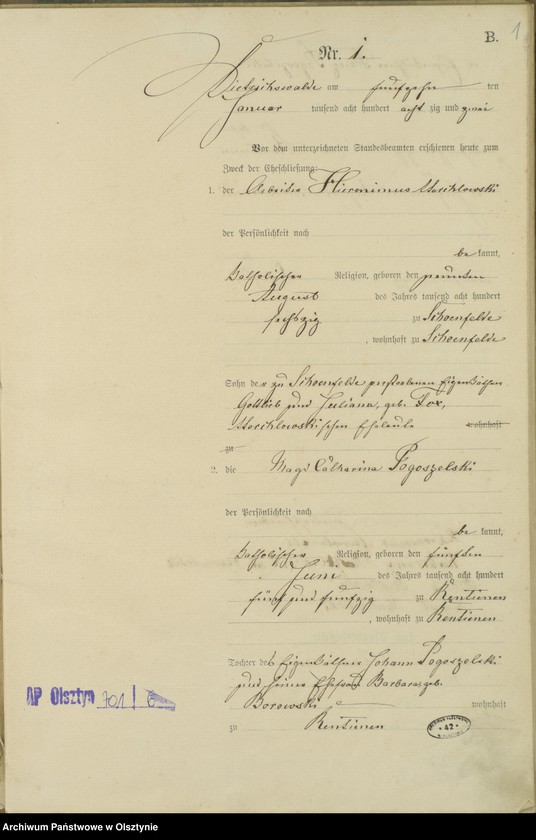 B. 1
Nr. 1.
Dietrichswalde am fünfzehn ten
Januar tausend acht hundert acht zig und zwei
Vor dem unterzeichneten Standesbeamten erschienen heute zum
Zweck der Eheschließung:
1. der Arbeiter Hieronimus
der Persönlichkeit nach
be kannt,
katholischer Religion, geboren den neunten
August des Jahres tausend acht hundert
sechszig zu Schoenfelde
, wohnhaft zu Schoenfelde
Sohn der zu Schoenfelde verstorbenen Eigenkäthner
Gottlieb und Juliana, geb. Fox,
schen Eheleute wohnhaft
zu
2. die Magd Catharina Pogoszelski
der Persönlichkeit nach
be kannt,
katholischer Religion, geboren den fünften
Juni des Jahres tausend acht hundert
fünf und fünfzig zu Rentienen
, wohnhaft zu Rentienen
Tochter des Eigenkäthner Johann Pogoszelski
und seiner Ehefrau Barbara geb.
Borowski wohnhaft
zu Rentienen
AP Olsztyn 701/
42
Archiwum Państwowe w Olsztynie